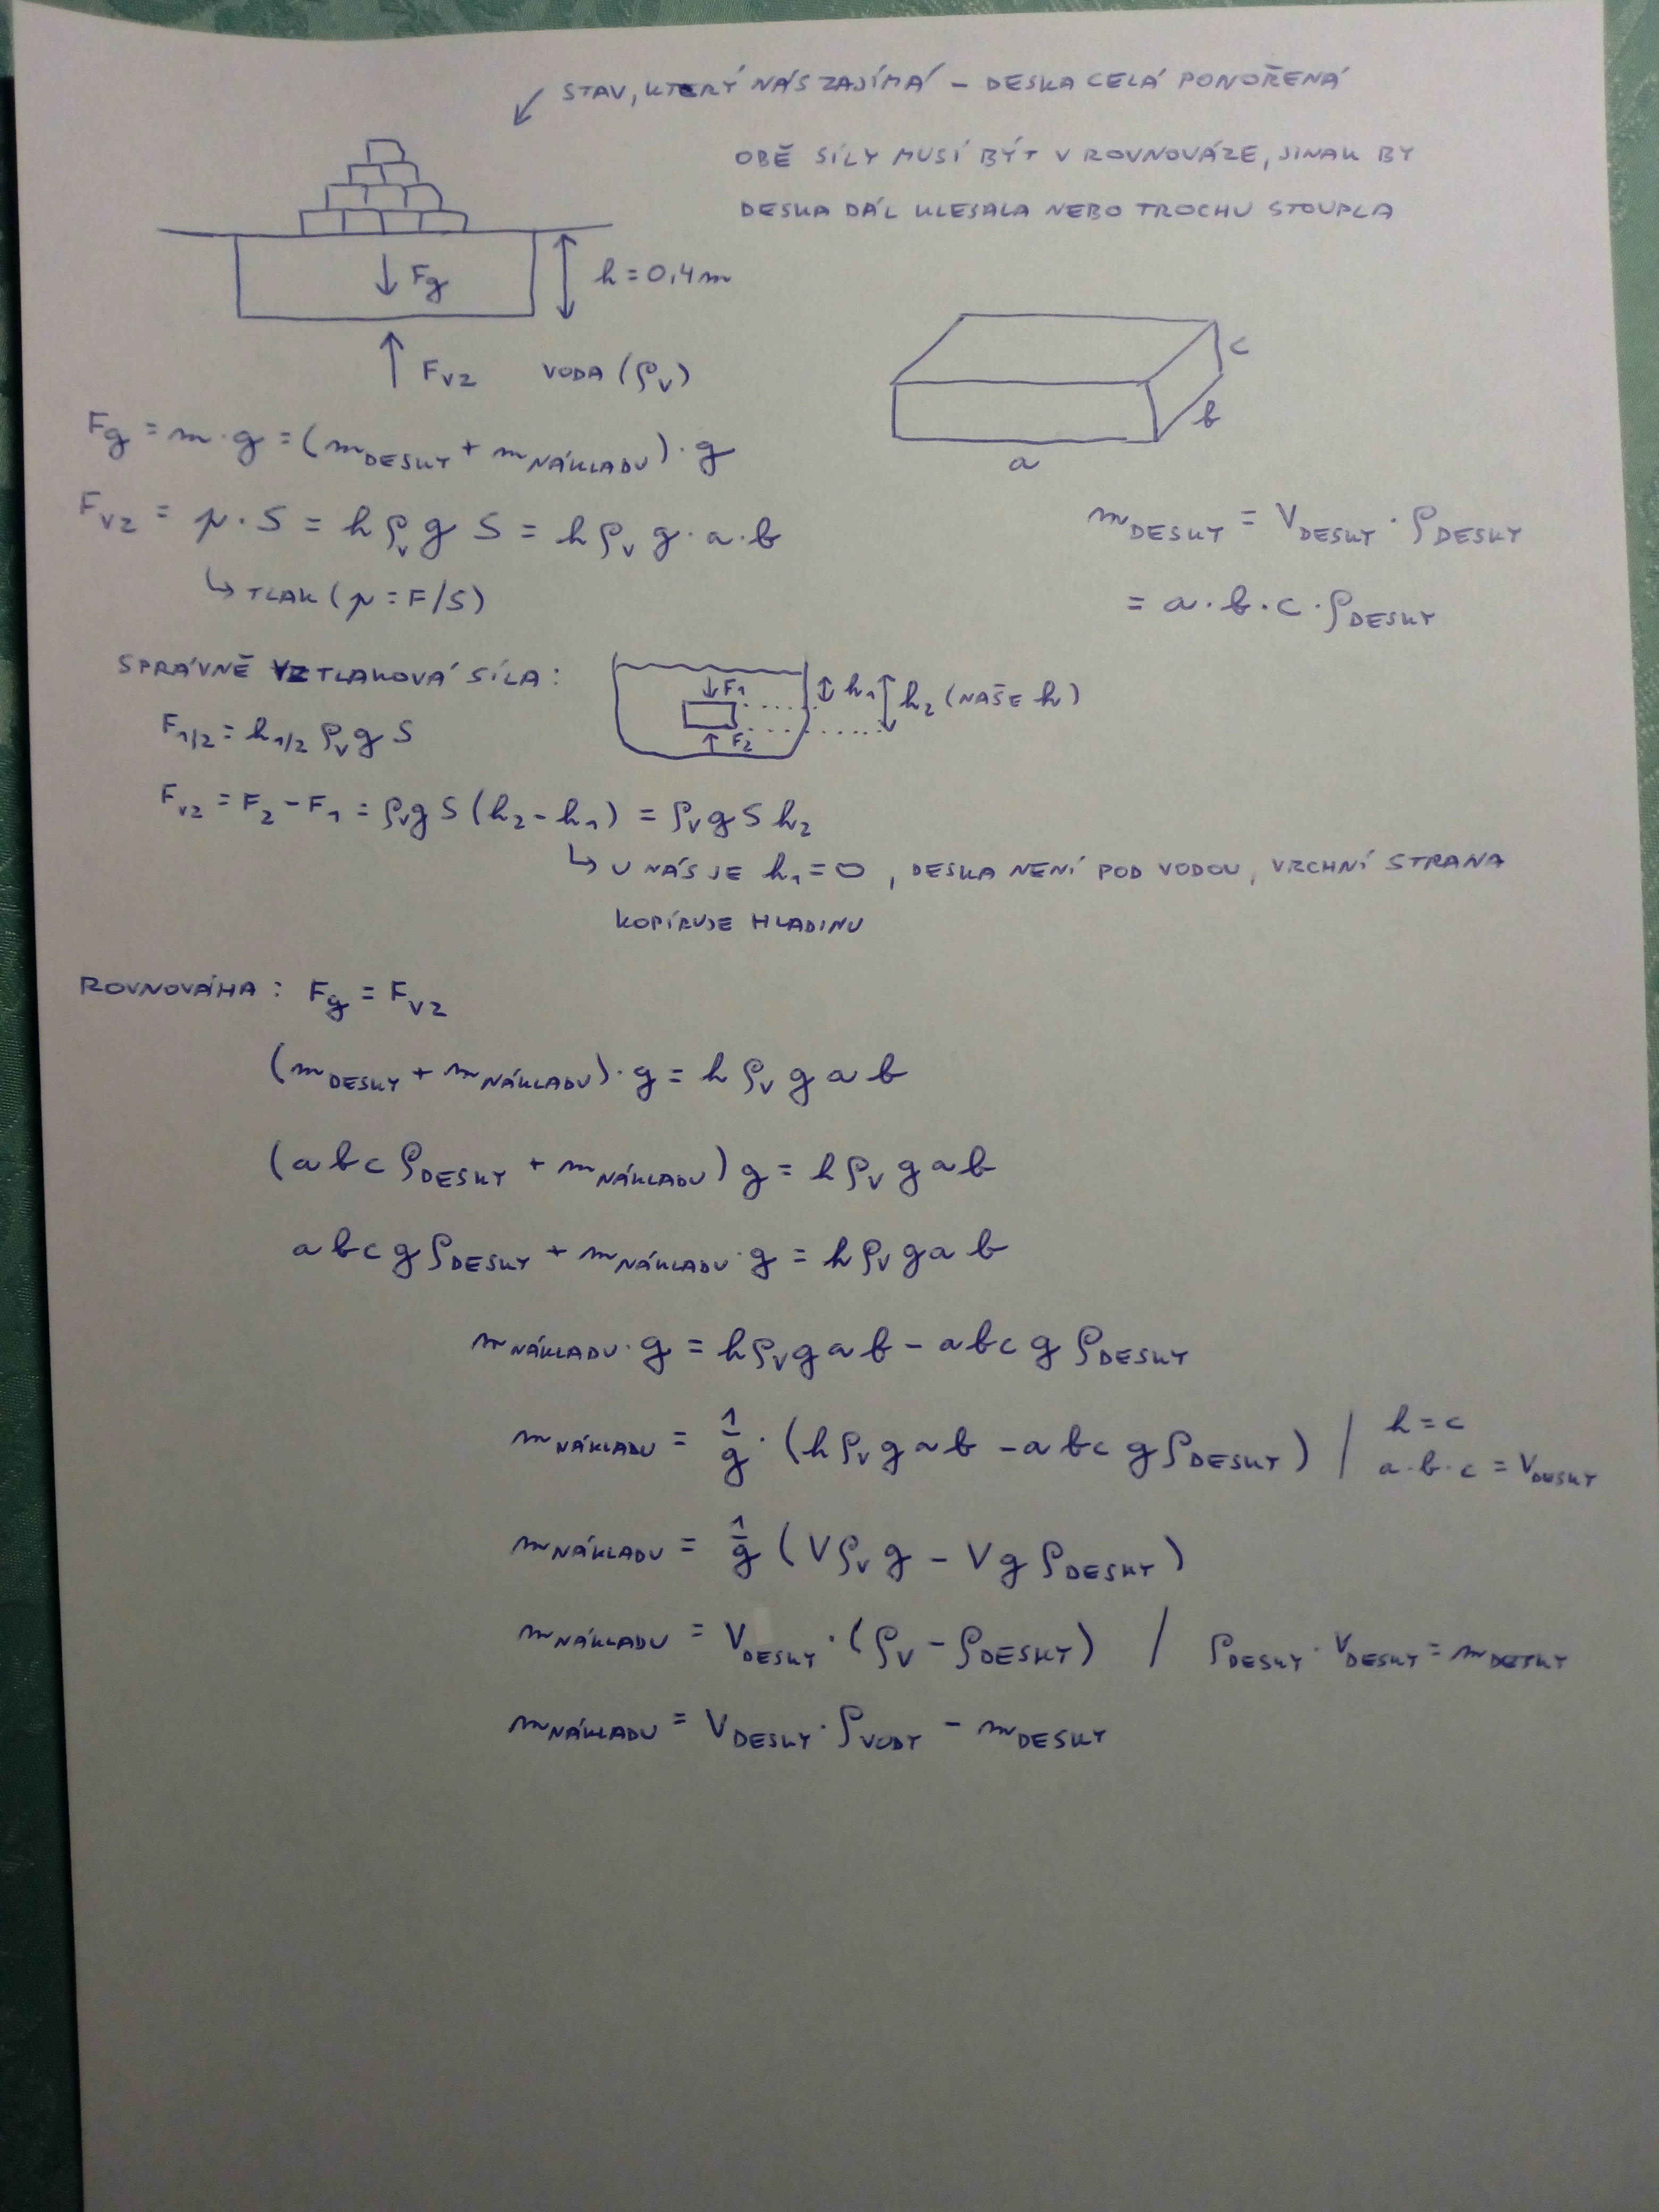 STAV, KTERÝ NÁS ZAJÍMÁ – DESKA CELÁ PONOŘENÁ
OBĚ SÍLY MUSÍ BÝT V ROVNOVÁZE, JINAK BY
DESKA DÁL KLESALA NEBO TROCHU STOUPLA
Fg
h = 0,4 m
Fvz VODA (ρv)
c
b
a
Fg = m · g = (mDESKY + mNÁKLADU) · g
Fvz = p · S = h ρv g S = h ρv g · a · b
↳ TLAK (p = F/S)
mDESKY = VDESKY · ρDESKY
= a · b · c · ρDESKY
SPRÁVNĚ VZTLAKOVÁ SÍLA:
↓F1 h1 h2 (NAŠE h)
↑F2
F1/2 = h1/2 ρv g S
Fvz = F2 – F1 = ρv g S (h2 – h1) = ρv g S h2
↳ U NÁS JE h1 = 0, DESKA NENÍ POD VODOU, VRCHNÍ STRANA
KOPÍRUJE HLADINU
ROVNOVÁHA: Fg = Fvz
(mDESKY + mNÁKLADU) · g = h ρv g a b
(a b c ρDESKY + mNÁKLADU) g = h ρv g a b
a b c g ρDESKY + mNÁKLADU · g = h ρv g a b
mNÁKLADU · g = h ρv g a b – a b c g ρDESKY
mNÁKLADU = 1/g · (h ρv g a b – a b c g ρDESKY) / h = c
a · b · c = VDESKY
mNÁKLADU = 1/g (V ρv g – V g ρDESKY)
mNÁKLADU = VDESKY · (ρv – ρDESKY) / ρDESKY · VDESKY = mDESKY
mNÁKLADU = VDESKY · ρVODY – mDESKY